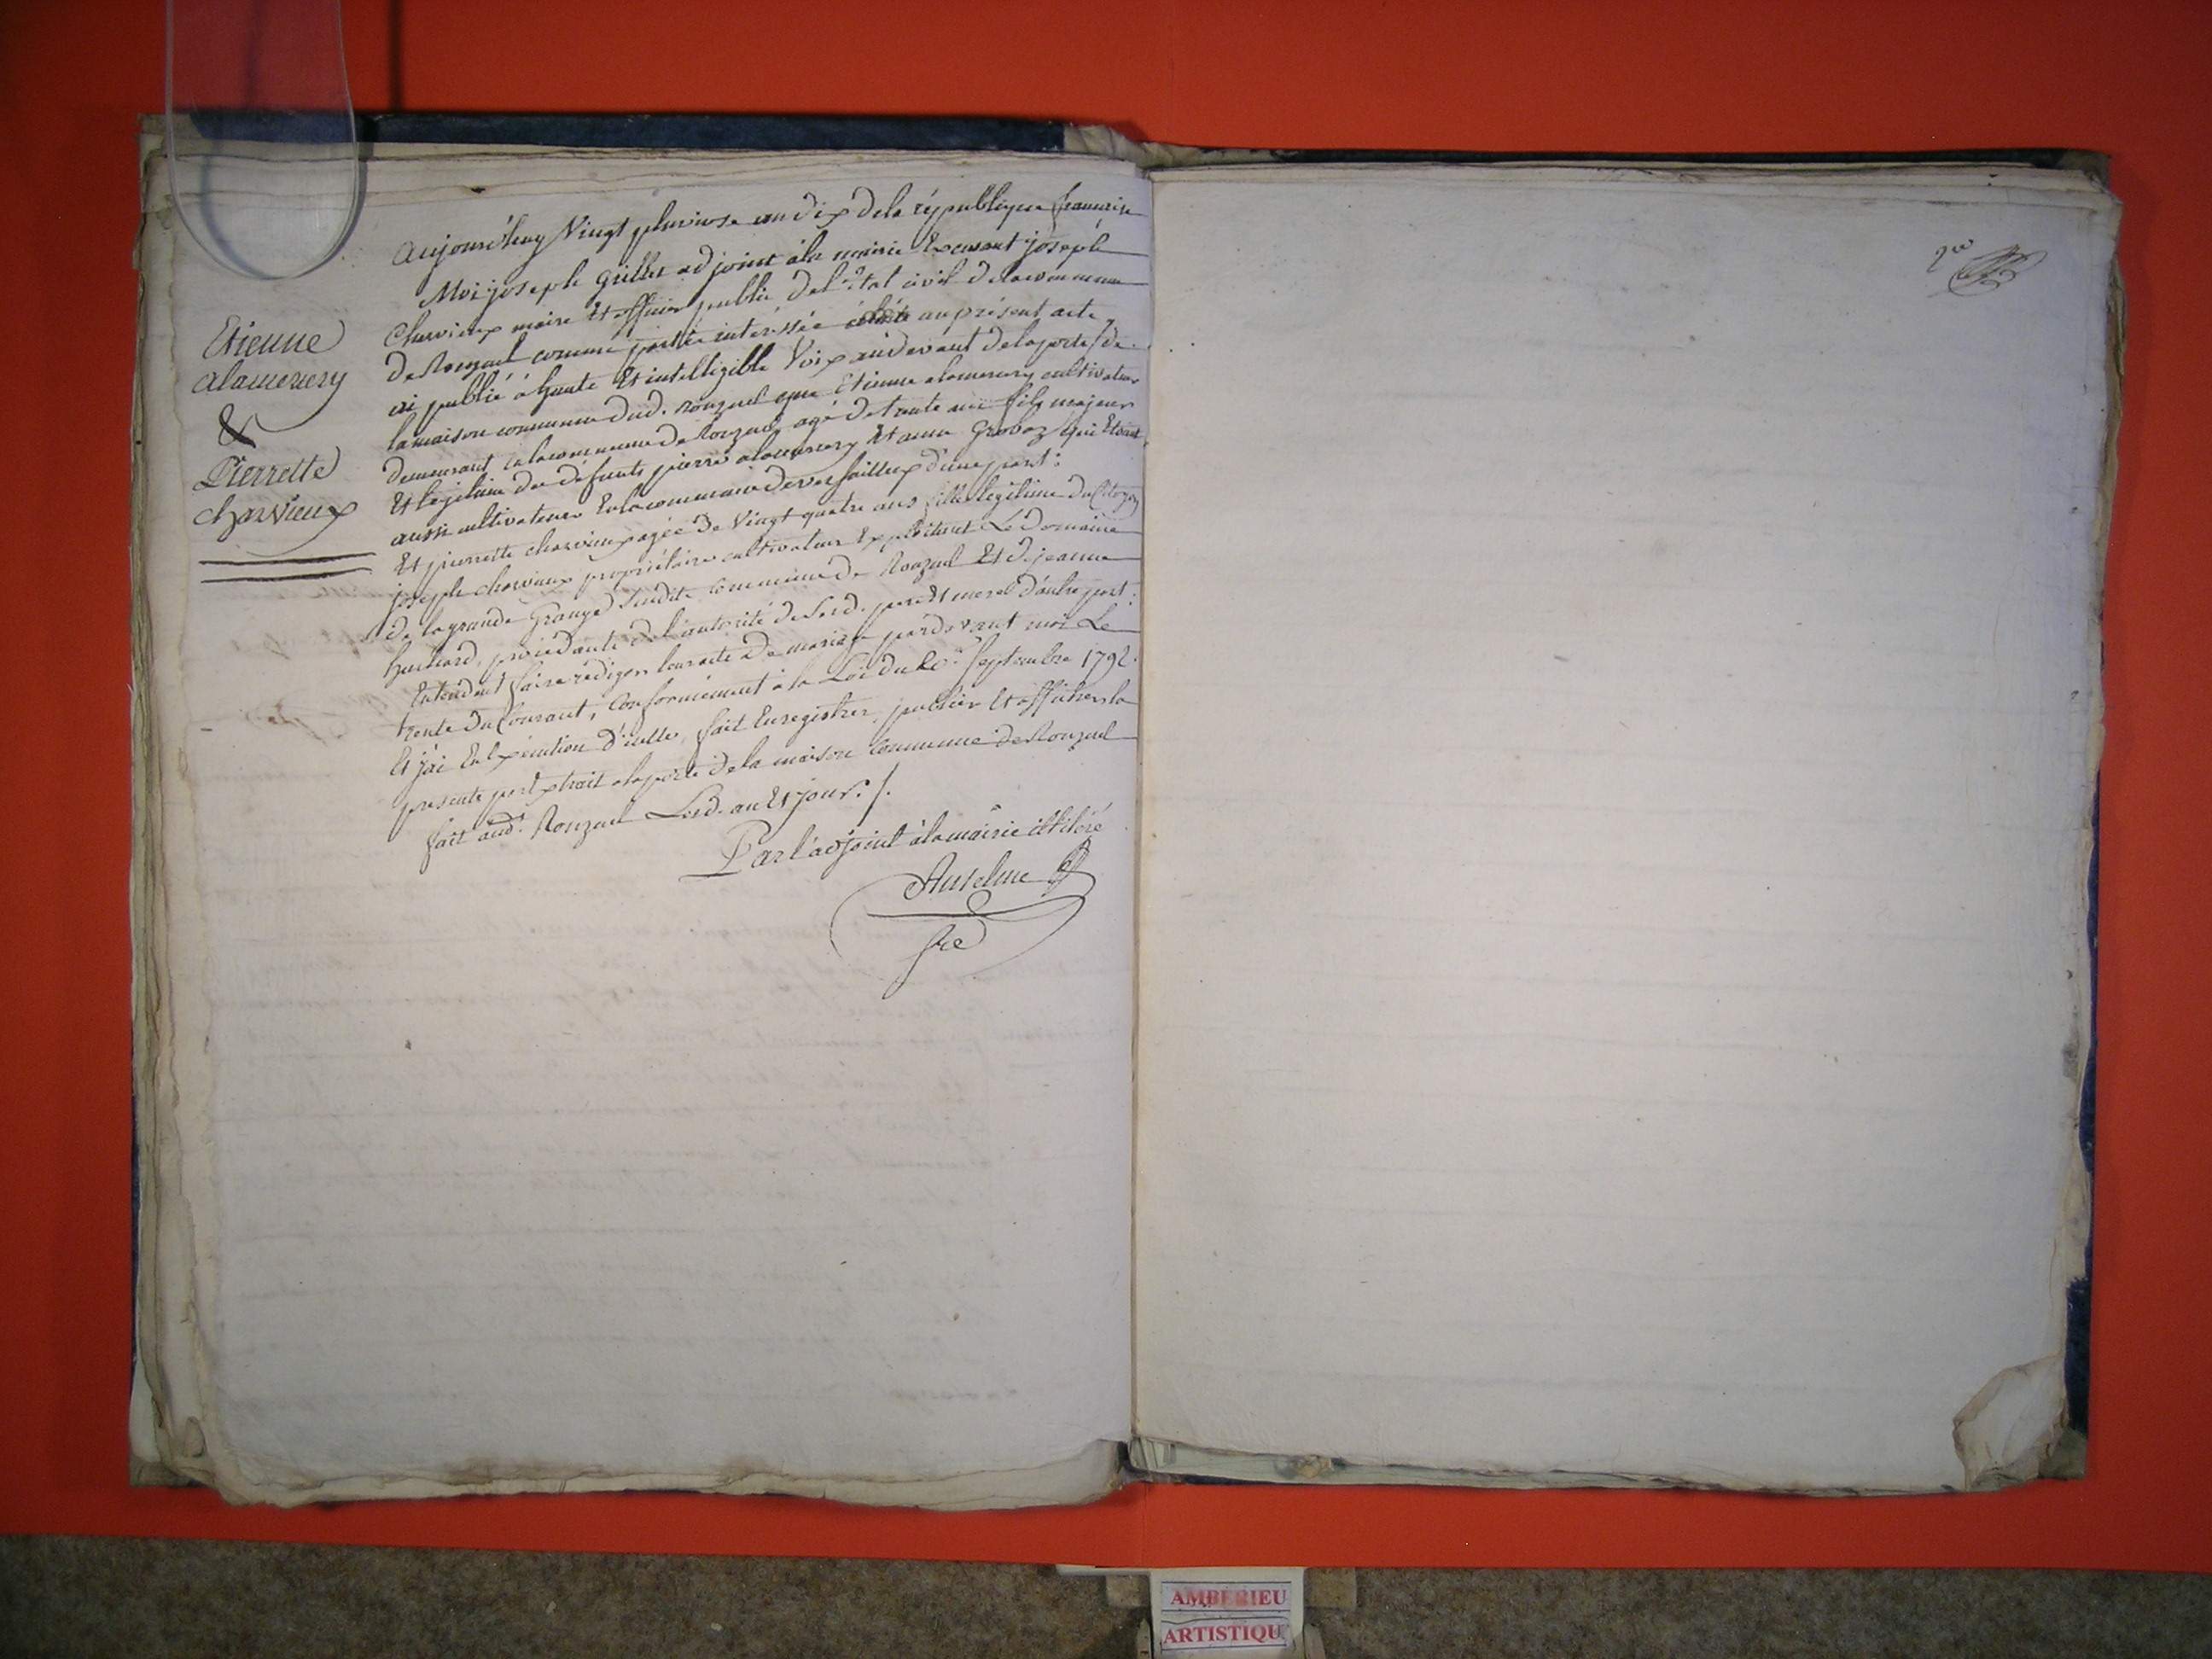 Etienne
alamercery
&
Pierrette
charvieux
aujourd'huy Vingt pluviose an dix de la république francaise
Moi joseph grillet adjoint à la mairie Excusant joseph
Charvieux maire Et officier public de l'état civil de la commune
de Ronzuel comme partie intéressée au présent acte,
ai publié à haute Et intelligible Voix au devant de la porte de
la maison commune dud. Ronzuel que Etienne alamercery cultivateur
demeurant en la commune de Ronzuel agé de trente ans fils majeur
Et légitime de défunts pierre alamercery Et anne Groboz qui Etoient
aussi cultivateurs En la commune de versailleux d'une part:
Et pierrette charvieux agée de Vingt quatre ans fille légitime du Citoyen
joseph charvieux propriétaire cultivateur Exploitant Le Domaine
de la grande Grange Susdite Commune de Ronzuel Et de jeanne
huchard, procédante de l'autorité de Sesd. pere Et mere d'autre part:
Entendent faire rediger leur acte de mariage pardevant moi Le
trente du Courant, Conformément à la Loi du 20.e Septembre 1792.
Et j'ai En Exécution d'icelle, fait Enregistrer, publier Et afficher la
présente par Extrait a la porte de la maison Commune de Ronzuel
fait aud.t Ronzuel Lesd. an Et jour ./.
Par l'adjoint à la mairie illiteré
Anselme
Sre
AMBERIEU
ARTISTIQU